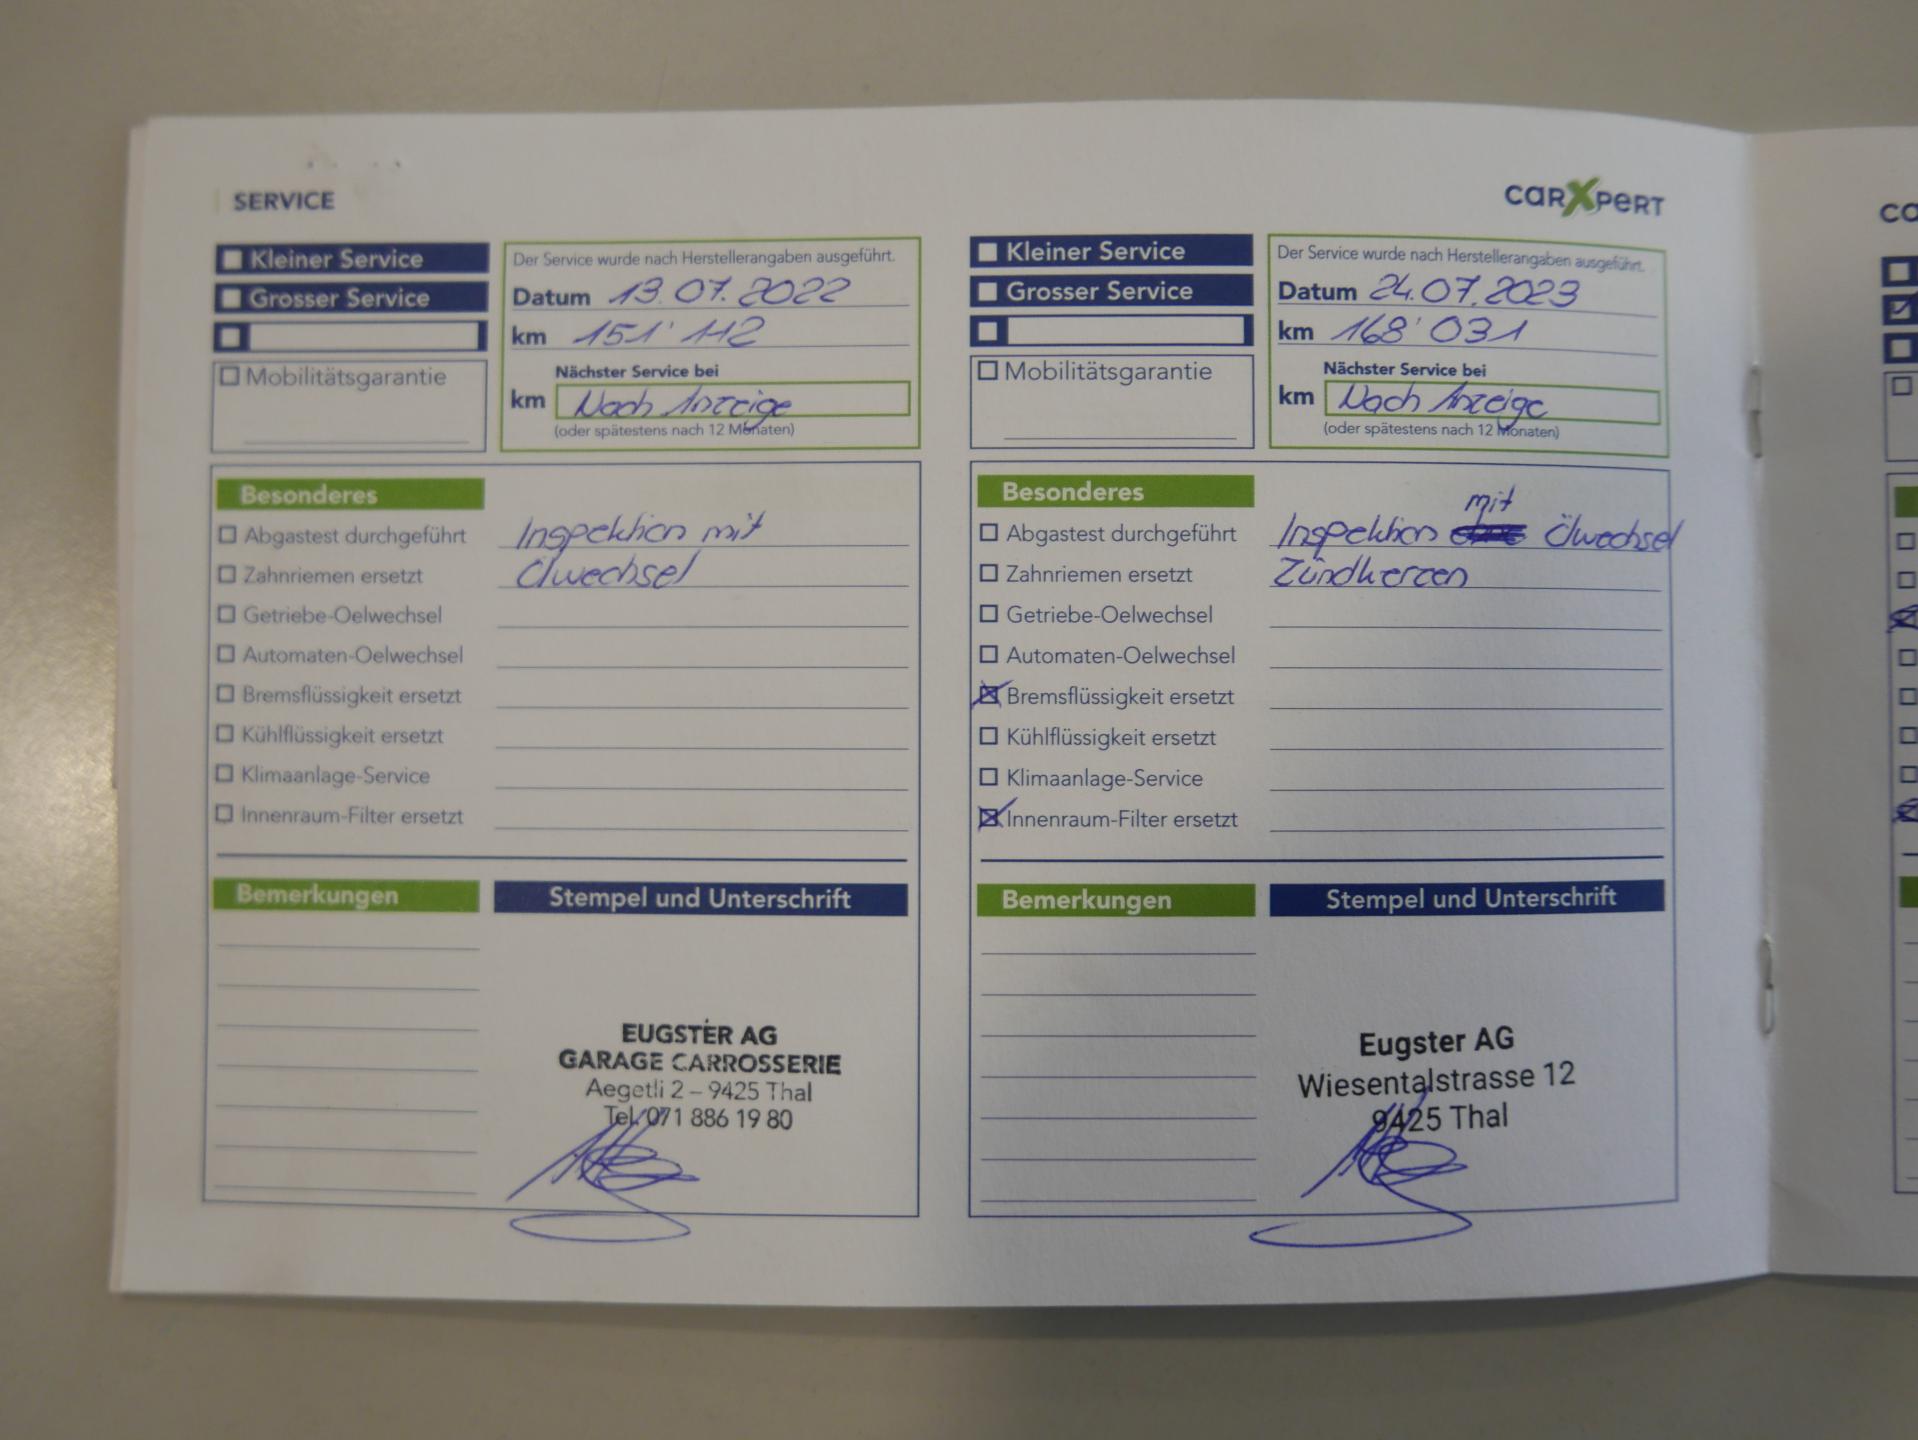 SERVICE
carXpert
Kleiner Service
Grosser Service
Mobilitätsgarantie
Der Service wurde nach Herstellerangaben ausgeführt.
Datum 13.07.2022
km 151'112
Nächster Service bei
km Nach Anzeige
(oder spätestens nach 12 Monaten)
Besonderes
Abgastest durchgeführt Inspektion mit
Zahnriemen ersetzt Ölwechsel
Getriebe-Oelwechsel
Automaten-Oelwechsel
Bremsflüssigkeit ersetzt
Kühlflüssigkeit ersetzt
Klimaanlage-Service
Innenraum-Filter ersetzt
Bemerkungen
Stempel und Unterschrift
EUGSTER AG
GARAGE CARROSSERIE
Aegetli 2 – 9425 Thal
Tel. 071 886 19 80
Kleiner Service
Grosser Service
Mobilitätsgarantie
Der Service wurde nach Herstellerangaben ausgeführt.
Datum 24.07.2023
km 168'031
Nächster Service bei
km Nach Anzeige
(oder spätestens nach 12 Monaten)
Besonderes
mit
Abgastest durchgeführt Inspektion Ölwechsel
Zahnriemen ersetzt Zündkerzen
Getriebe-Oelwechsel
Automaten-Oelwechsel
Bremsflüssigkeit ersetzt
Kühlflüssigkeit ersetzt
Klimaanlage-Service
Innenraum-Filter ersetzt
Bemerkungen
Stempel und Unterschrift
Eugster AG
Wiesentalstrasse 12
9425 Thal
ca